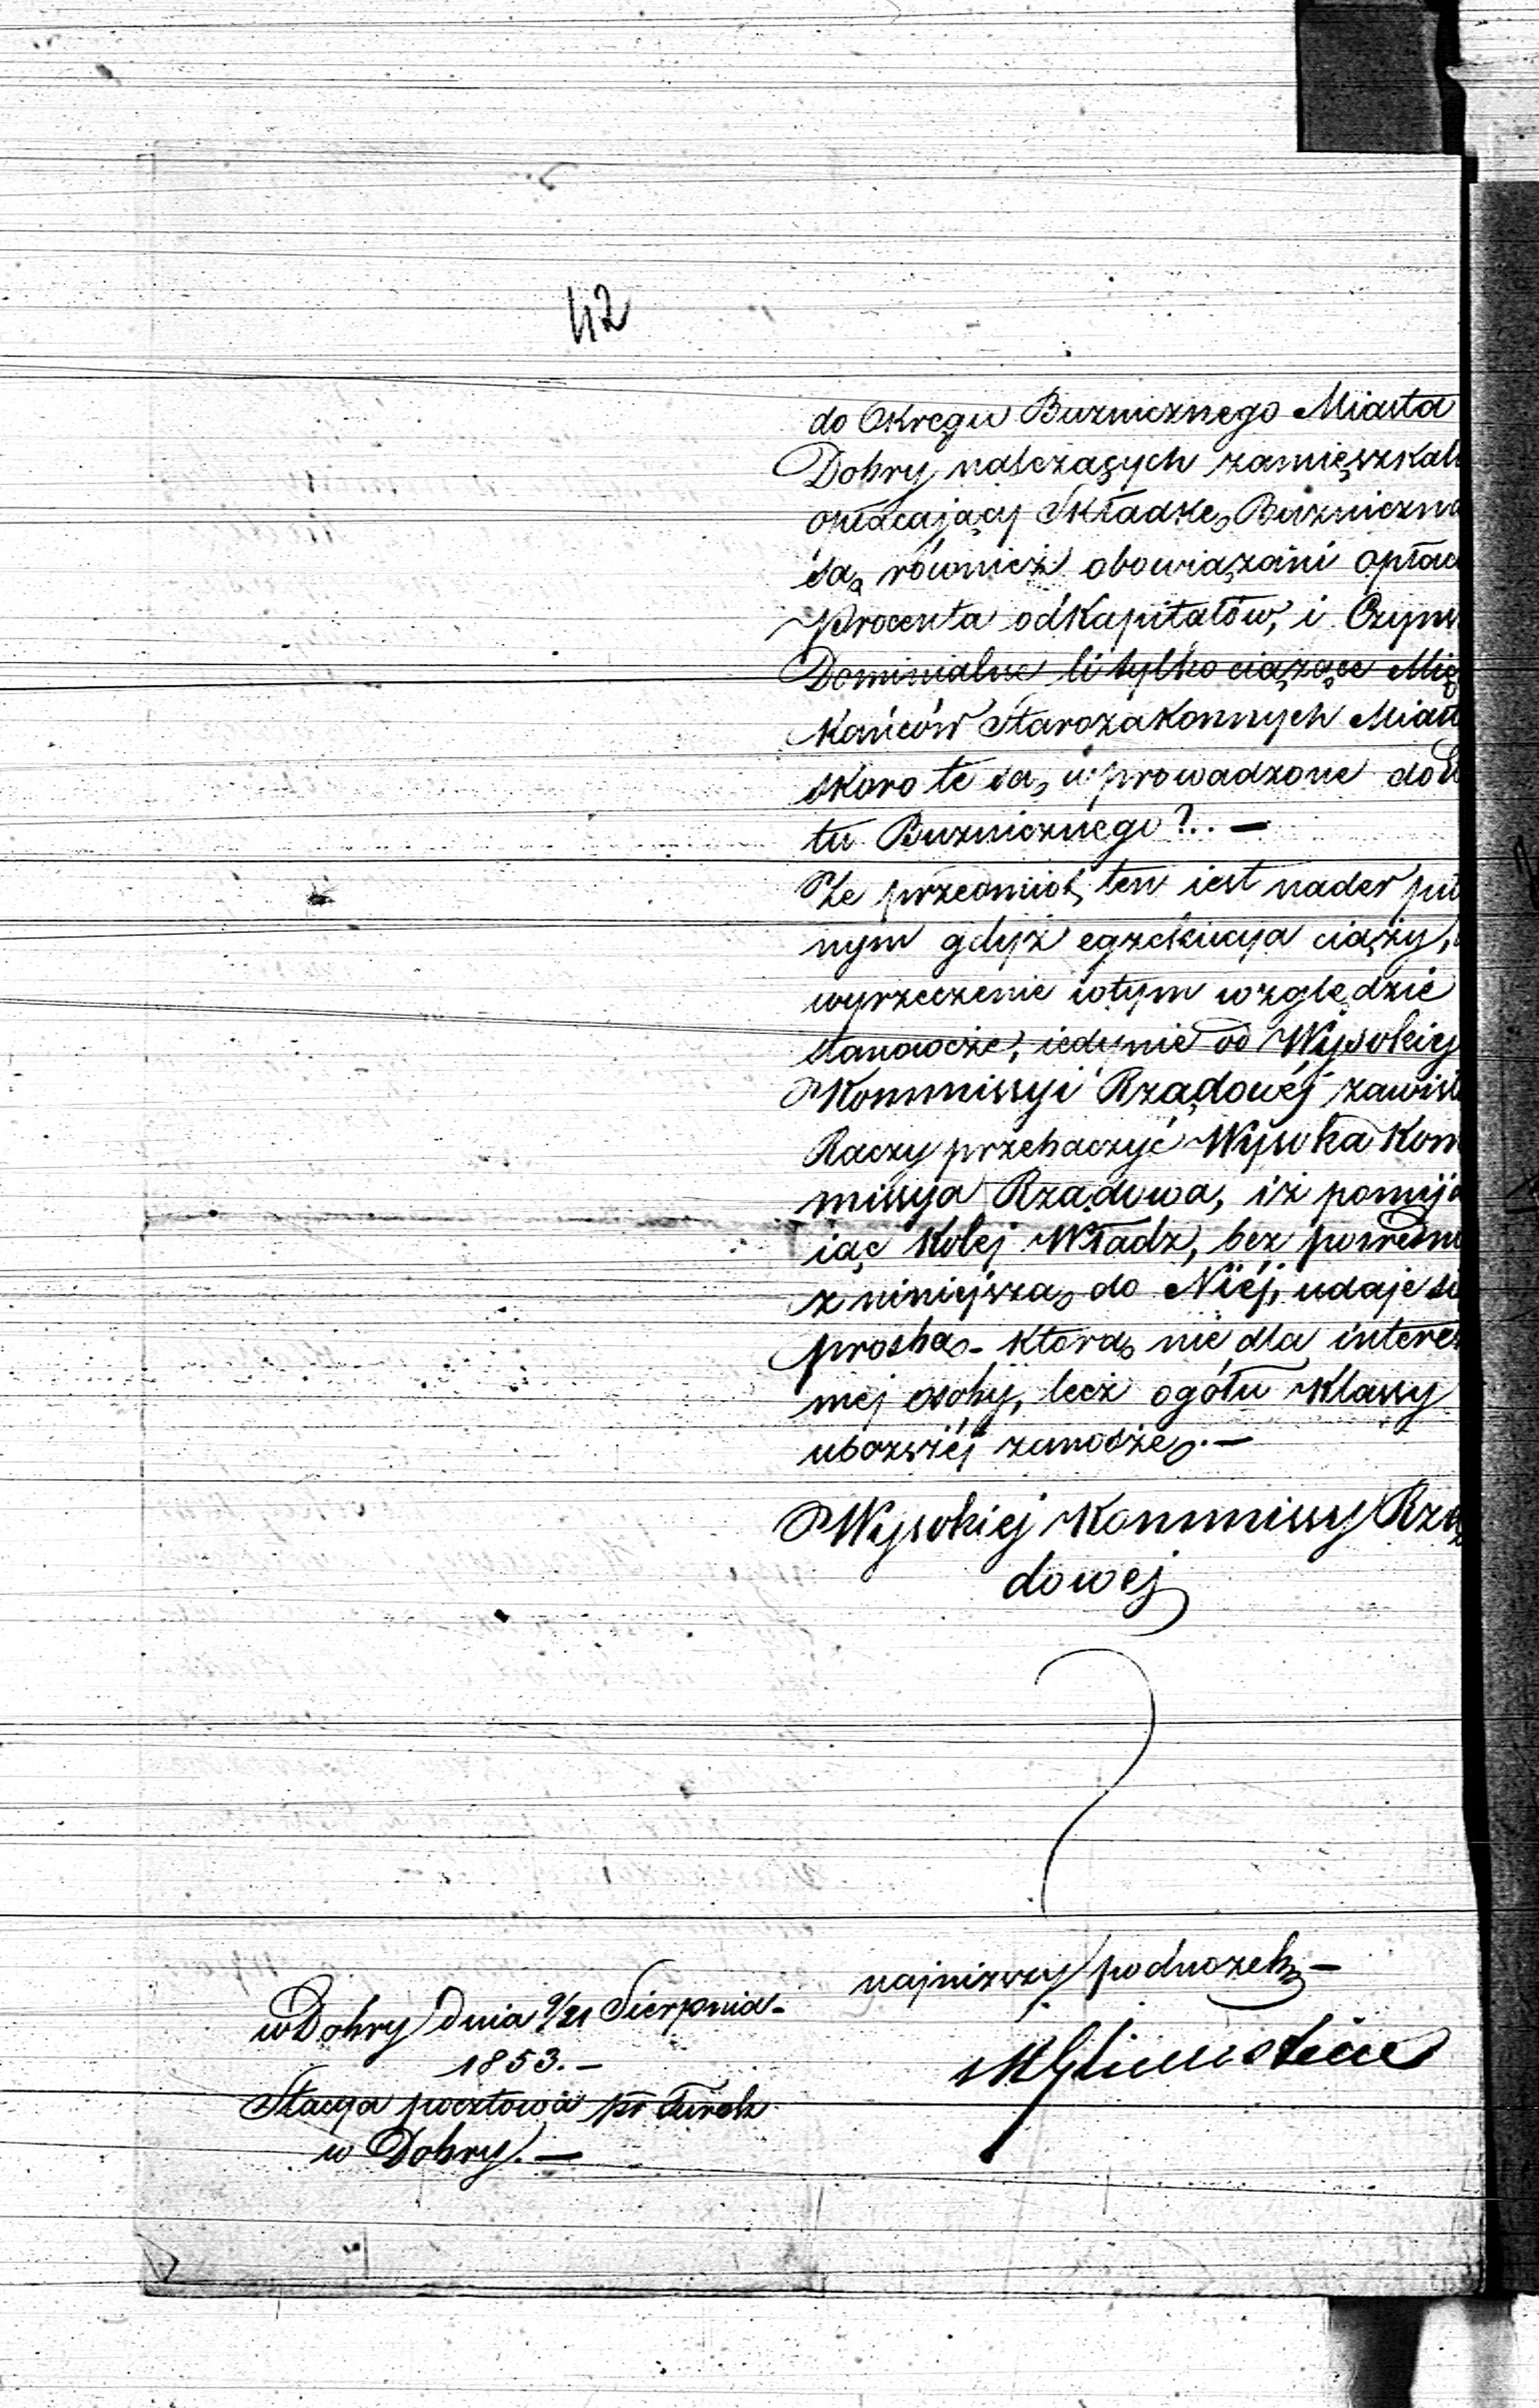 42
do Okręgu Bużnicznego Miasta
Dobry należących zamięszkali
opłacający Składkę Bużniczną
są również obowiązani opłac
Procenta od Kapitałów, i Czyns
Dominialne li tylko ciążące Mię
kańców Starozakonnych Miast
skoro te są wprowadzone do E
tu Bużnicznego?.. —
Że przedmiot ten iest nader pil
nym gdyż egzekucya ciąży,
wyrzeczenie w tym względzie
stanowcze, iedynie od Wysokiey
Kommissyi Rządowéj zawisł
Raczy przebaczyć Wysoka Kom
missya Rządowa, iż pomija
iąc Koléj Władz, bez pośredn
z niniejszą do Niéj, udaje si
prosbą - którą nie dla interes
mej osoby, lecz ogółu Klassy
uboższéj zanoszę. —
Wysokiej Kommissy Rzą
dowej
najniższy podnożek —
w Dobry dnia 9/21 Sierpnia -
1853. —
Stacya pocztowa pr Turek
w Dobry. —